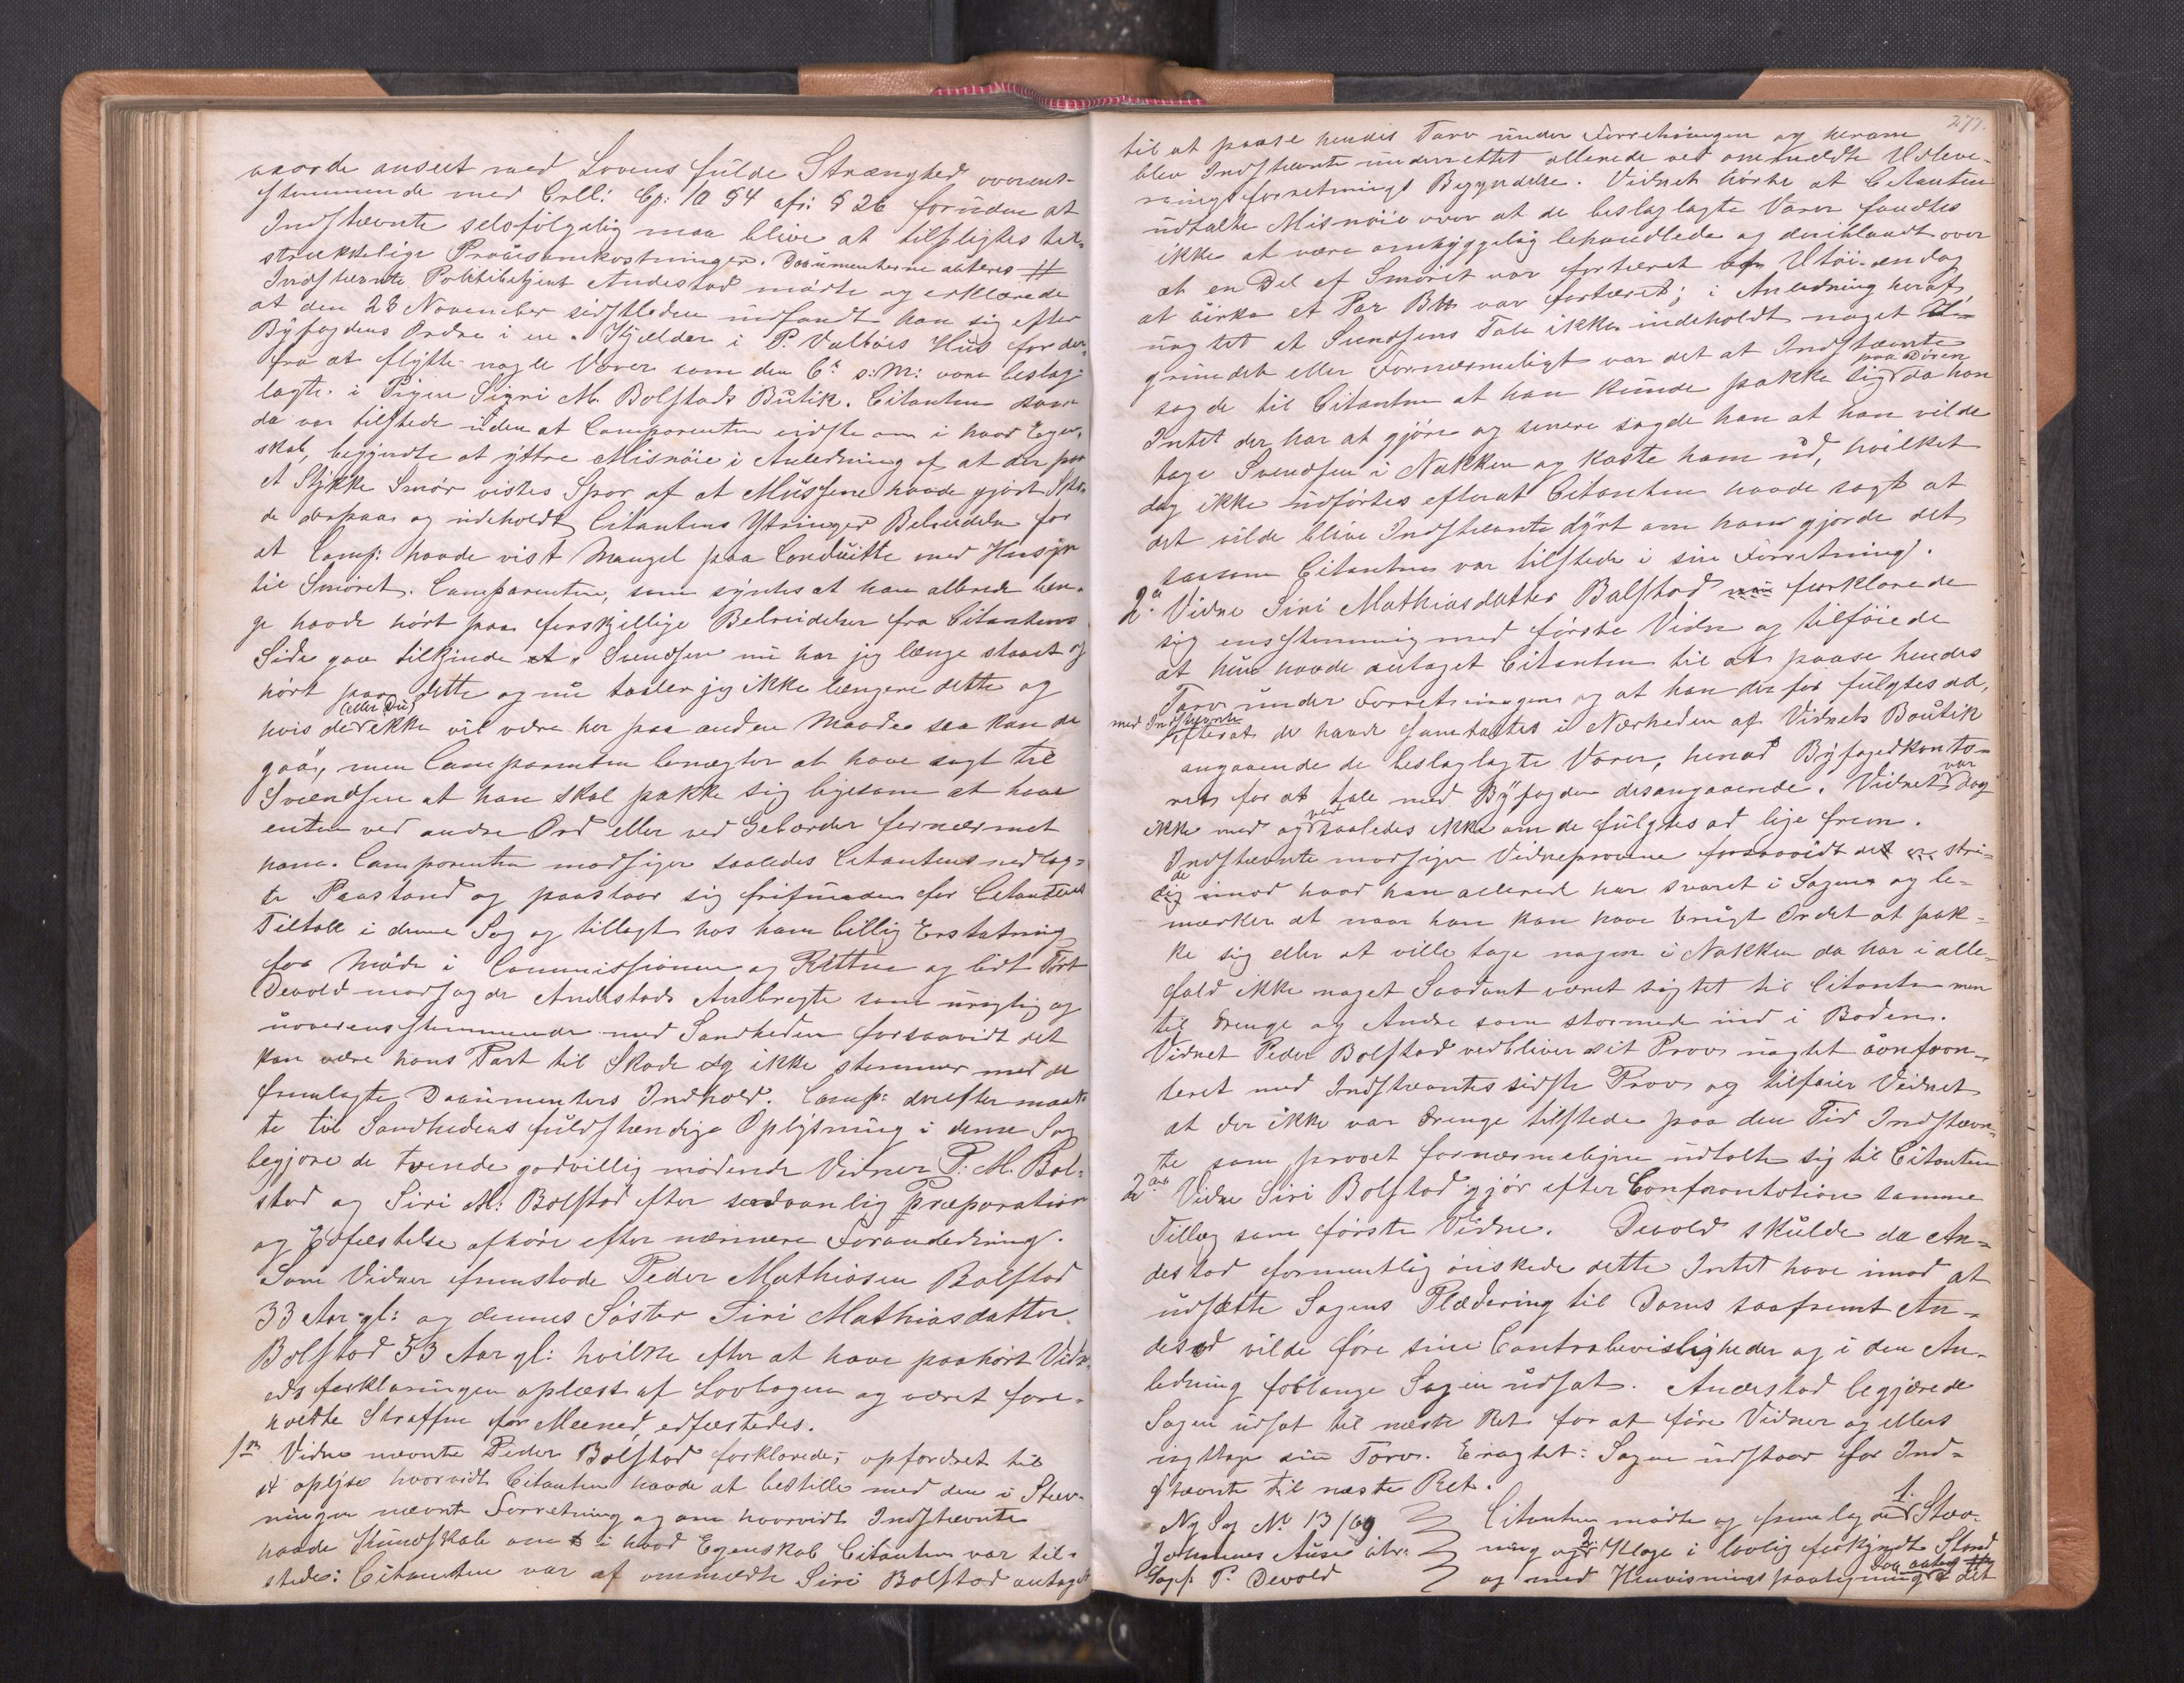 vorde anseet med Lovens fulde Strænghed overens-
stemmende med Crll: Cp: 10 § 4 cfr: § 26 foruden at
Indstævnte selvfølgelig maa blive at tilpligtes til-
strækkelige Procesomkostninger. Documenterne akteres #
Indstævnte Politibetjent Andestad mødte og erklærede
at den 28 November sidstleden indfandt han sig efter
Byfogdens Ordre i en Kjelder i P. Valbøes Hus for der-
fra at flytte nogle Varer som den 6te s: M: vare beslag-
lagte i Pigen Sigri M. Bolstads Butik. Citanten som
da var tilstede uden at Comparenten vidste om i hvad Egen-
skab, begyndte at yttre Misnøie i Anledning af at der paa
et Stykke Smør vistes Spor af at Musene havde gjort Ska-
de derpaa og indeholdt Citantens Ytringer Bebreidelse for
at Comp: havde vist Mangel paa Conduitte med Hensyn
til Smøret. Comparenten, som syntes at han allerede læn-
ge havde hørt paa forskjellige Bebreidelser fra Citantens
Side gav tilkjende at, "Svendsen nu har jeg længe staaet og
hørt paa dette og nu taaler jeg ikke længere dette og
hvis de (eller Du) ikke vil være her paa anden Maade saa kan de
gaa", men Comparenten benægter at have sagt til
Svendsen at han skal pakke sig ligesom at have
enten ved andre Ord eller ved Gebærder fornærmet
ham. Comparenten modsiger saaledes Citantens nedlag-
te Paastand og paastaar sig frifunden for Citantens
Tiltale i denne Sag og tillagt hos ham billig Erstatning
for Møde i Commissionen og Retten og lidt Tort
Devold modsagde Andestads Anbragte som urigtig og
uoverensstemmende med Sandheden forsaavidt det
kan være hans Part til Skade og ikke stemmer med de
fremlagte Documenters Indhold. Comp: derefter maat-
te til Sandhedens fuldstændige Oplysning i denne Sag
begjære de tvende godvillig mødende Vidner P. M. Bol-
stad og Siri M: Bolstad efter sædvanlig Præparation
og Edfæstelse afhøre efter nærmere Foranledning.
Som Vidner fremstode Peder Mathiasen Bolstad
33 Aar gl: og dennes Søster Siri Mathiasdatter
Bolstad 53 Aar gl: hvilke efter at have paahørt Vidn-
eds forklaringen oplæst af Lovbogen og været fore-
holdte Straffen for Meened, edfæstedes.
1ste Vidne nævnte Peder Bolstad forklarede, opfordret til
at oplyse hvorvidt Citanten havde at bestille med den i Stæv-
ningen nævnte Forretning og om hvorvidt Indstævnte
havde Kundskab om i hvad Egenskab Citanten var til-
stede: Citanten var af ommeldte Siri Bolstad antaget
277.
til at paase hendes Tarv under Forretningen og herom
blev Indstævnte underrettet allerede ved ommeldte Udleve-
ringsforretnings Begyndelse. Vidnet hørte at Citanten
udtalte Misnøie over at de beslaglagte Varer fandtes
ikke at være omhyggelig behandlede og deriblandt over
at en Del af Smøret var fortæret af Utøi endog
at cirka et Par B# var fortæret; i Anledning heraf
uagtet at Svendsens Tale ikke indeholdt noget U-
grundet eller Fornærmeligt var det at Indstævnte
sagde til Citanten at han kunde pakke sig paa Døren da han
Intet der har at gjøre og senere sagde han at han vilde
tage Svendsen i Nakken og kaste ham ud, hvilket
dog ikke udførtes efterat Citanten havde sagt at
det vilde blive Indstævnte dyrt om han gjorde det
saasom Citanten var tilstede i sin Forretning.
2det Vidne Siri Mathiasdatter Bolstad forklarede
sig ensstemmig med første Vidne og tilføiede
at hun havde antaget Citanten til at paase hendes
Tarv under Forretningen og at han derfor fulgtes ad,
med Indstævnte efterat de havde samtaltes i Nærheden af Vidnets Boutik
angaaende de beslaglagte Varer, henad Byfogedkonto-
ret for at tale med Byfogden desangaaende. Vidnet var dog
ikke med og ved saaledes ikke om de fulgtes ad lige frem.
Indstævnte modsiger Vidneprovene forsaavidt de stri-
de imod hvad han allerede har svaret i Sagen og be-
mærker at naar han kan have brugt Ordet at pak-
ke sig eller at ville tage nogen i Nakken da har i alle-
fald ikke noget Saadant været sigtet til Citanten men
til Drenge og Andre som stormede ind i Boden.
Vidnet Peder Bolstad vedbliver sit Prov uagtet confron-
teret med Indstævntes sidste Prov og tilføier Vidnet
at der ikke var Drenge tilstede paa den Tid Indstævn-
te som provet fornærmeligen udtalte sig til Citanten
2det Vidne Siri Bolstad gjør efter Confrontation samme
Tillæg som første Vidne. Devold skulde da An-
destad formentlig ønskede dette Intet have imod at
udsætte Sagens Pladering til Doms saafremt An-
destad vilde føre sine Contrabevisligheder og i den An-
ledning forlange Sagen udsat. Andestad begjærede
Sagen udsat til næste Ret for at føre Vidner og ellers
iagttage sin Tarv. Eragtet: Sagen udstaar for Ind-
stævnte til næste Ret.
Ny Sag No 13/69
Johannes Ause ctr.
Sags: P. Devold
Citanten mødte og fremlagde 1. Stæv-
ning og 2 Klage i lovlig forkyndt Stand
og med Henvisningspaategning det